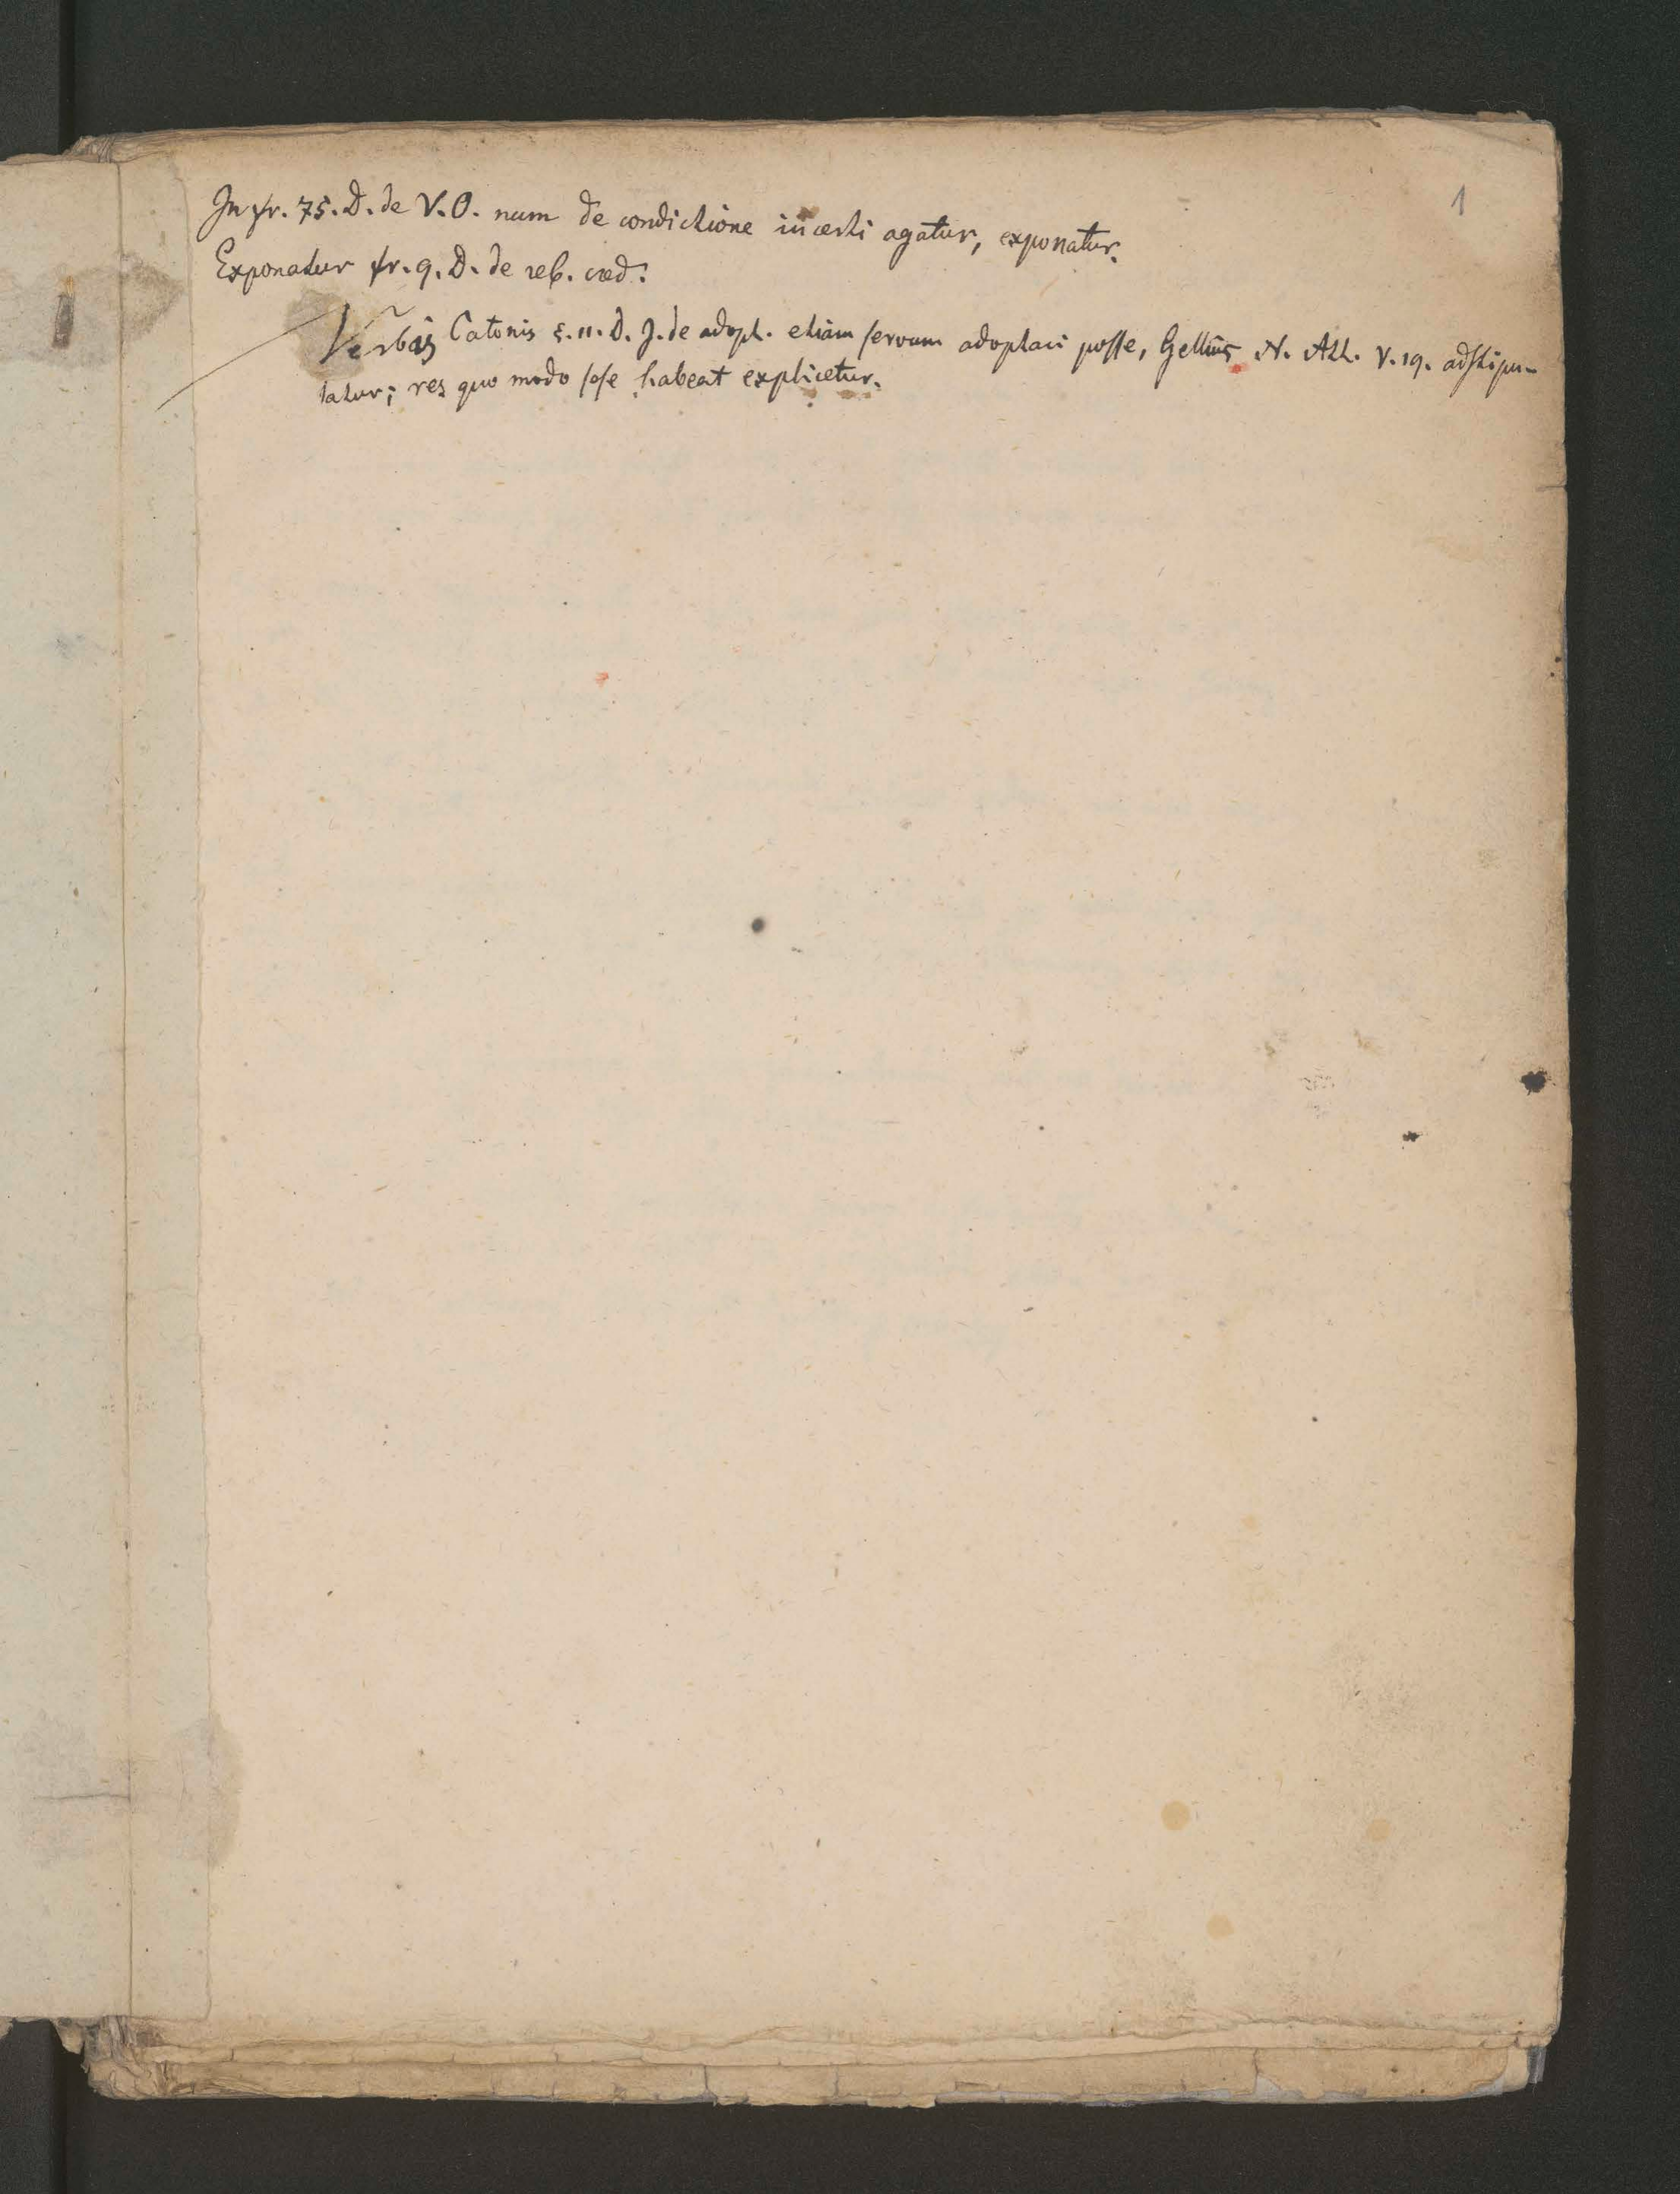 1
In fr. 75. D. de V. O. num de condictione incerti agatur, exponatur.
Exponatur fr. 9. D. de reb. cred.
Verbis Catonis §. 11. D. J. de adopt. etiam servum adoptari posse, Gellius N. Att. V. 19. adstipu-
latur; res quo modo sese habeat explicetur.